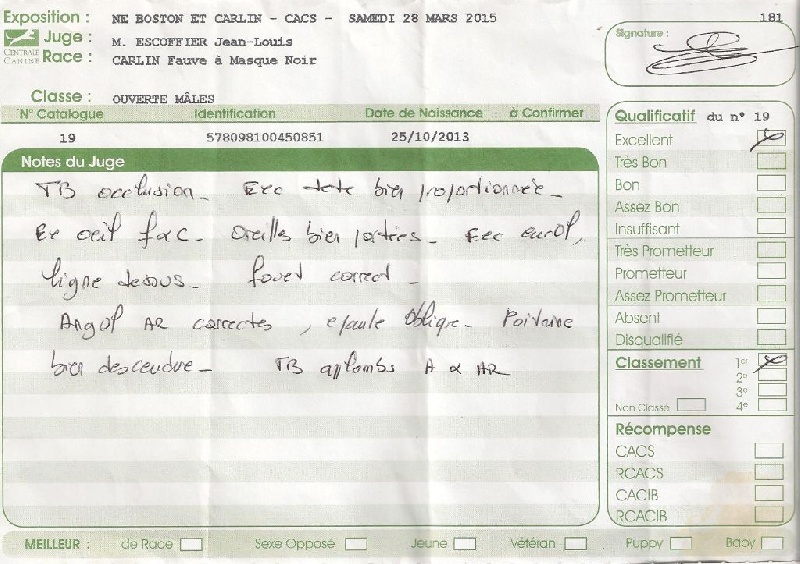 Exposition : NE BOSTON ET CARLIN - CACS - SAMEDI 28 MARS 2015
181
CENTRALE CANINE
Juge : M. ESCOFFIER Jean-Louis
Race : CARLIN Fauve à Masque Noir
Signature :
Classe : OUVERTE MÂLES
N° Catalogue Identification Date de Naissance à Confirmer
19 578098100450851 25/10/2013
Notes du Juge
TB occlusion - Exc tete bien proportionnée -
Ex oeil foc - oreilles bien portées - Exc encol,
ligne dessus - fouet correct -
Angul AR correctes, epaule oblique - Poitrine
bien descendue - TB applombs A & AR
Qualificatif du n° 19
Excellent
Très Bon
Bon
Assez Bon
Insuffisant
Très Prometteur
Prometteur
Assez Prometteur
Absent
Disqualifié
Classement 1er
2e
3e
Non Classé 4e
Récompense
CACS
RCACS
CACIB
RCACIB
MEILLEUR : de Race Sexe Opposé Jeune Vétéran Puppy Baby